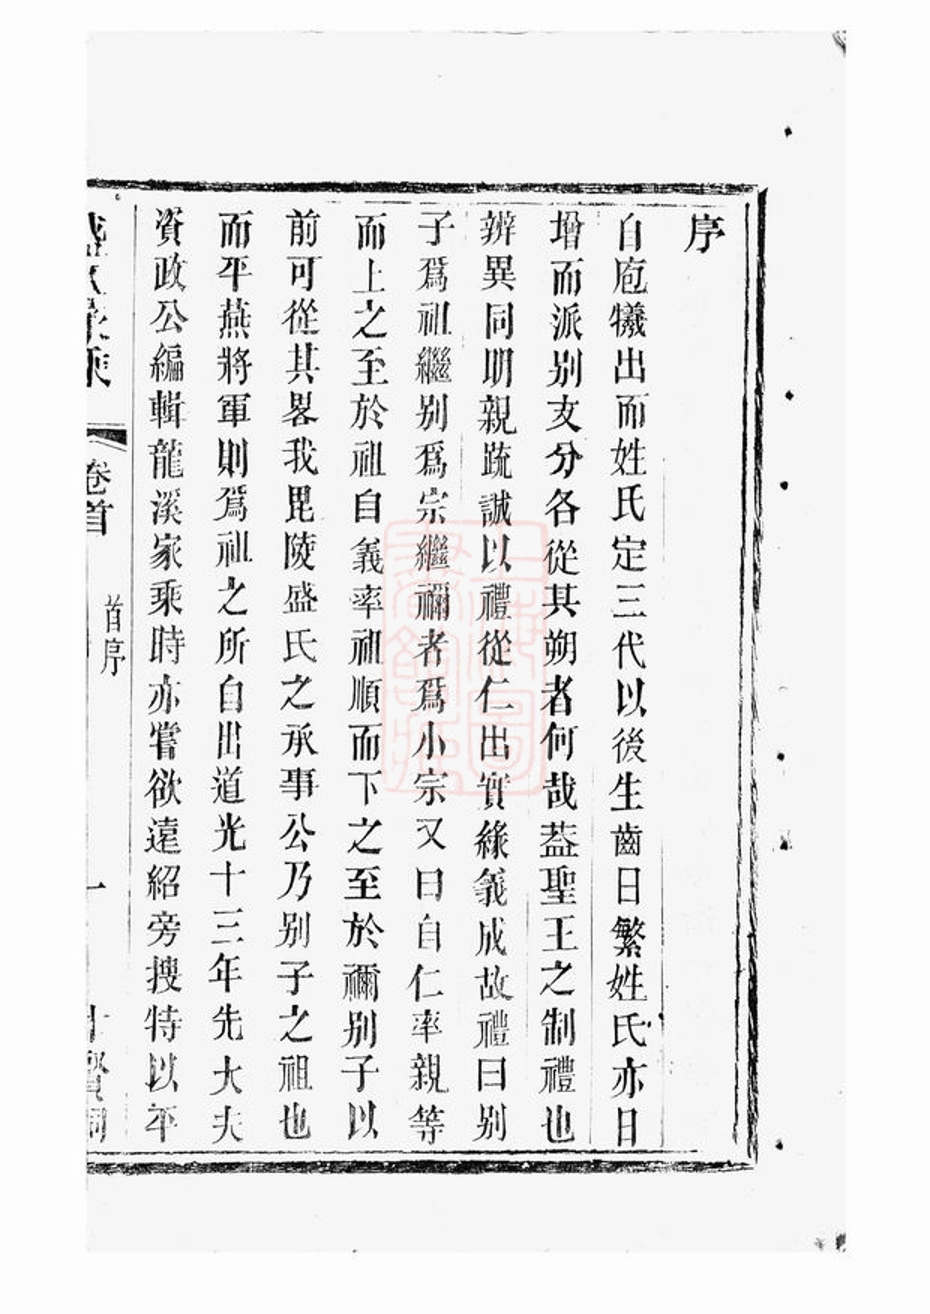 序
自庖犧出而姓氏定三代以後生齒日繁姓氏亦日
增而派别支分各從其朔者何哉葢聖王之制禮也
辨異同明親疏誠以禮從仁出實緣義成故禮曰别
子爲祖繼别爲宗繼禰者爲小宗又曰自仁率親等
而上之至於祖自義率祖順而下之至於禰别子以
前可從其畧我毘陵盛氏之承事公乃别子之祖也
而平燕將軍則爲祖之所自出道光十三年先大夫
資政公編輯龍溪家乘時亦嘗欲遠紹旁搜特以平
盛氏家乘
卷首
首序
一